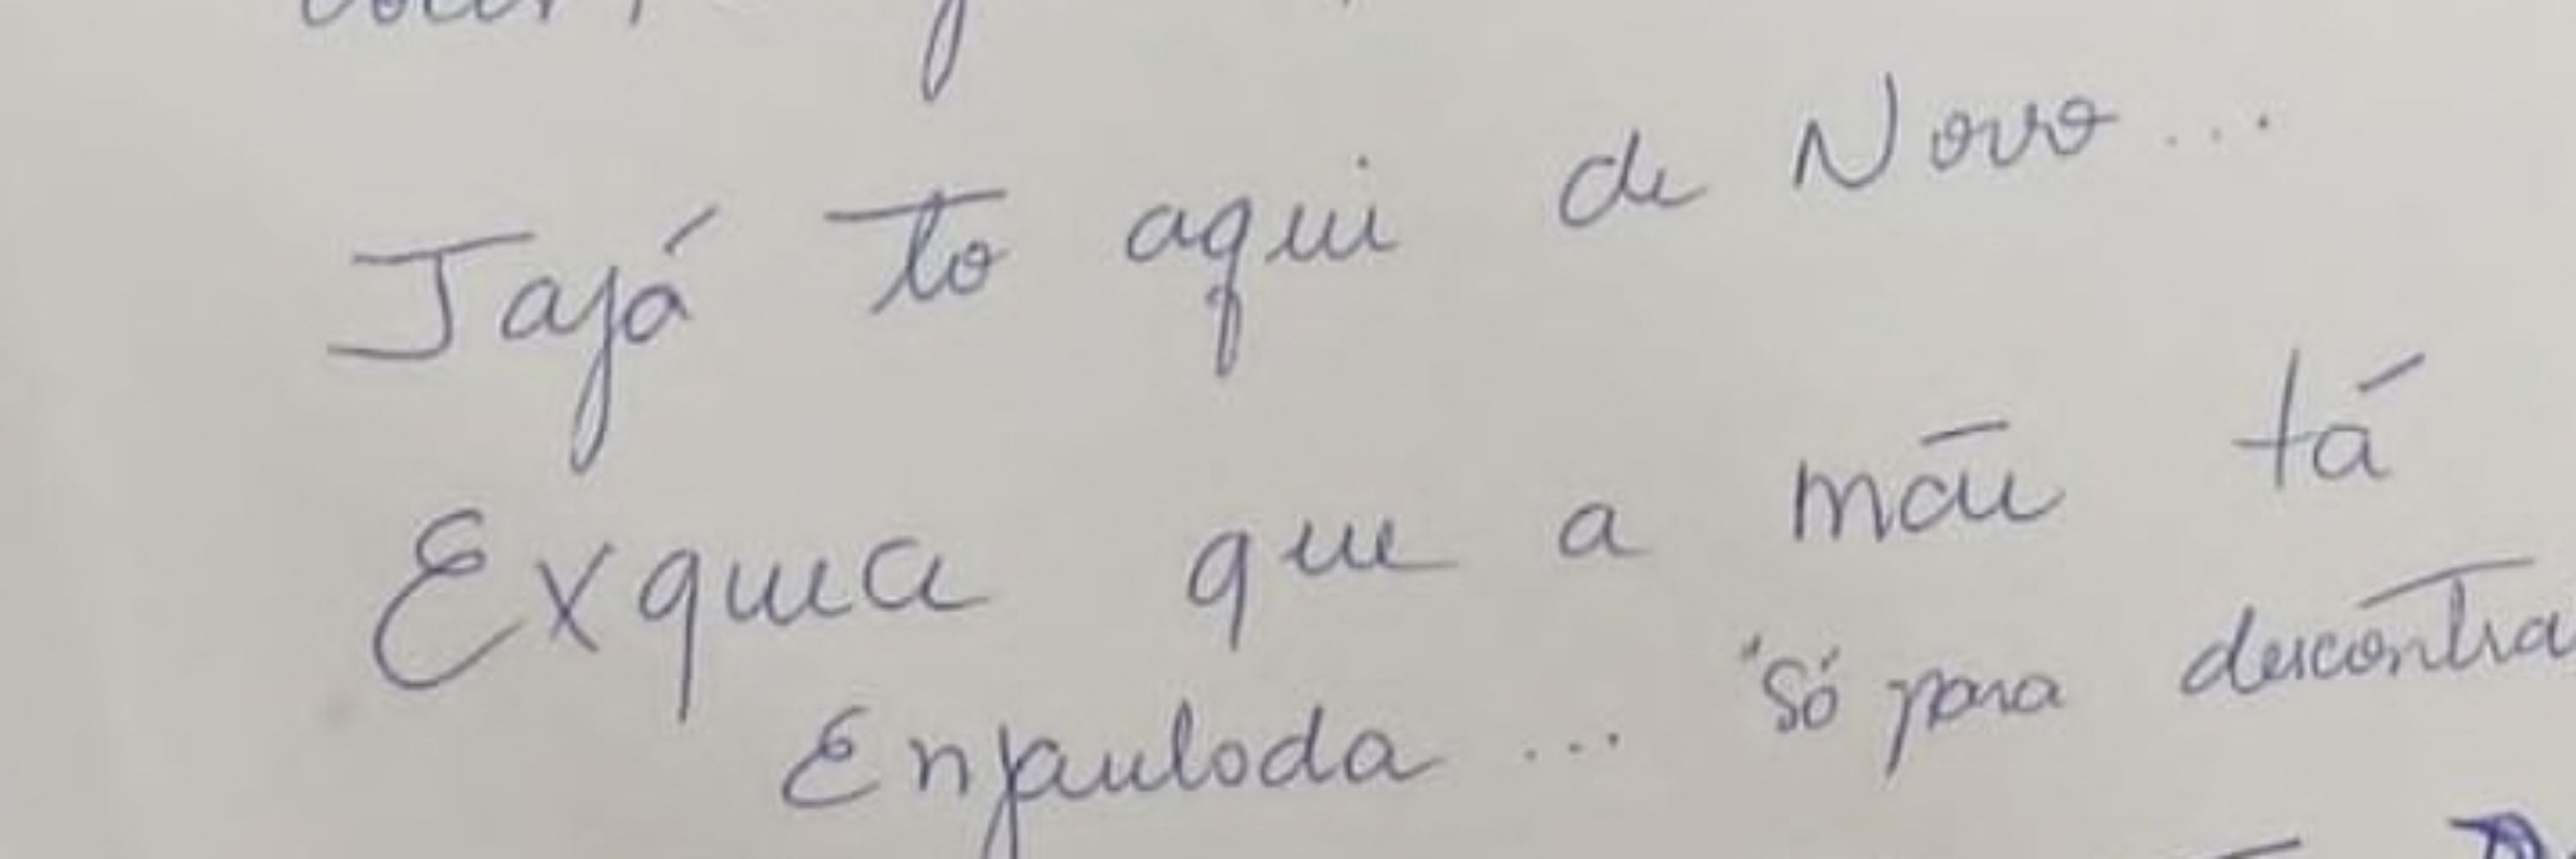 Jajá to aqui de Novo...
Exquea que a mãe tá
Enjaulada... "Só para descontra